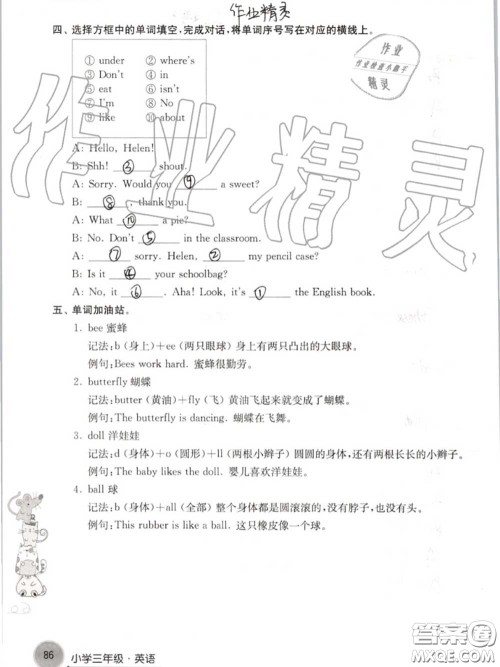 作业精灵
四、选择方框中的单词填空,完成对话,将单词序号写在对应的横线上。
① under ② where's
③ Don't ④ in
⑤ eat ⑥ isn't
⑦ I'm ⑧ No
⑨ like ⑩ about
作业
精灵
A: Hello, Helen!
B: Shh! ③ shout.
A: Sorry. Would you ⑨ a sweet?
B: ⑧, thank you.
A: What ⑩ a pie?
B: No. Don't ⑤ in the classroom.
A: ⑦ sorry. Helen, ② my pencil case?
B: Is it ④ your schoolbag?
A: No, it . Aha! Look, it's ① the English book.
作业精灵
五、单词加油站。
1. bee 蜜蜂
记法:b(身上)+ee(两只眼球)身上有两只凸出的大眼球。
例句:Bees work hard. 蜜蜂很勤劳。
2. butterfly 蝴蝶
记法:butter(黄油)+fly(飞)黄油飞起来就变成了蝴蝶。
例句:The butterfly is dancing. 蝴蝶在飞舞。
3. doll 洋娃娃
记法:d(身体)+o(圆形)+ll(两根小辫子)圆圆的身体,还有两根长长的小辫子。
例句:The baby likes the doll. 婴儿喜欢洋娃娃。
4. ball 球
记法:b(身体)+all(全部)整个身体都是圆滚滚的,没有脖子,也没有头。
例句:This rubber is like a ball. 这只橡皮像一个球。
86 小学三年级·英语
MXQE.COM